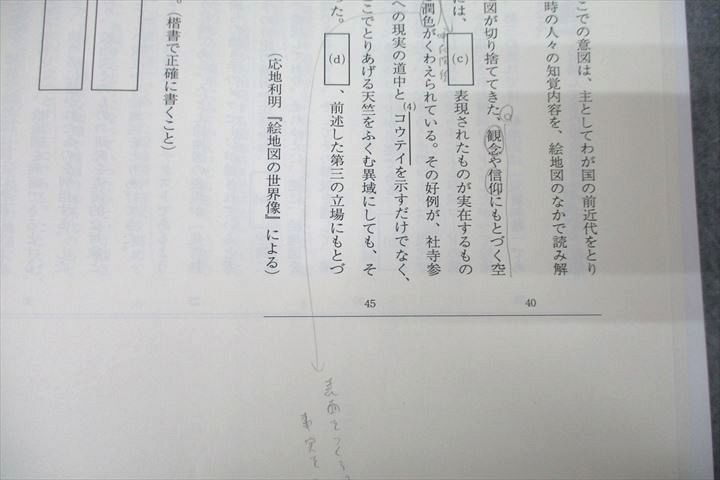 こでの意図は、主としてわが国の前近代をとり
時の人々の知覚内容を、絵地図のなかで読み解
図が切り捨ててきた、観念や信仰にもとづく空
には、(c)表現されたものが実在するもの
潤色がくわえられている。その好例が、社寺参
への現実の道中と(4)コウテイを示すだけでなく、
こでとりあげる天竺をふくむ異域にしても、そ
た。(d)、前述した第三の立場にもとづ
(応地利明『絵地図の世界像』による)
。(楷書で正確に書くこと)
40
45
表面をつくろう
事実を